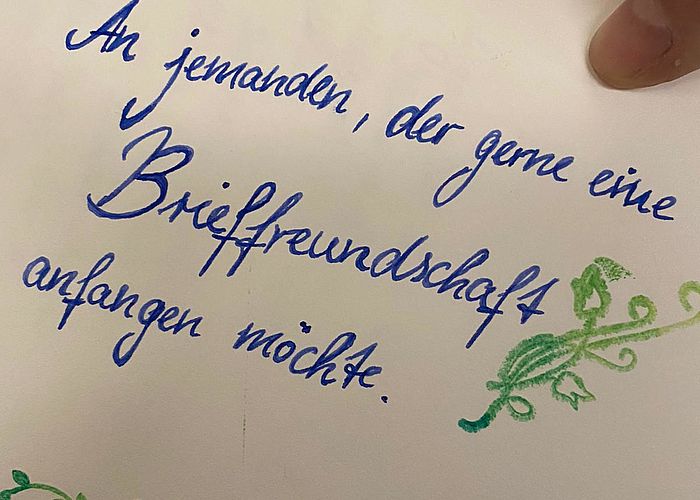 An jemanden, der gerne eine
Brieffreundschaft
anfangen möchte.